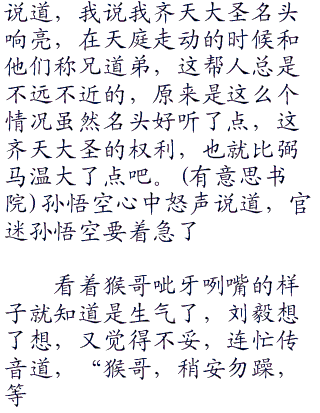 说道，我说我齐天大圣名头
响亮，在天庭走动的时候和
他们称兄道弟，这帮人总是
不远不近的，原来是这么个
情况虽然名头好听了点，这
齐天大圣的权利，也就比弼
马温大了点吧。(有意思书
院)孙悟空心中怒声说道，官
迷孙悟空要着急了
看着猴哥呲牙咧嘴的样
子就知道是生气了，刘毅想
了想，又觉得不妥，连忙传
音道，“猴哥，稍安勿躁，
等